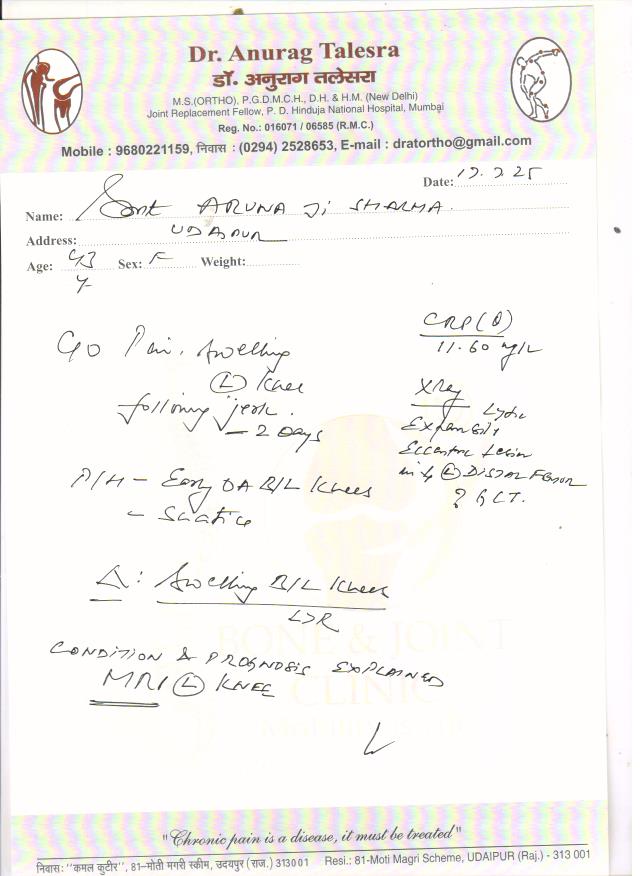 Dr. Anurag Talesra
डॉ. अनुराग तलेसरा
M.S.(ORTHO), P.G.D.M.C.H., D.H. & H.M. (New Delhi)
Joint Replacement Fellow, P. D. Hinduja National Hospital, Mumbai
Reg. No.: 016071 / 06585 (R.M.C.)
Mobile : 9680221159, निवास : (0294) 2528653, E-mail : dratortho@gmail.com
Date:
Name: Smt ARUNA Ji SHARMA
Address: UDAIPUR
Age: 43 Sex: F Weight:
Y
C/O Pain, Swelling
(L) Knee
following jerk.
– 2 Days
P/H – Early OA B/L Knees
CRP(Q)
11.60 mg/L
XRay
Lytic
Expansile
Eccentric Lesion
(L) DISTAL FEMUR
? GCT.
Δ: Swelling B/L Knees
L>R
CONDITION & PROGNOSIS EXPLAINED
MRI (L) KNEE
BONE & JOINT
CLINIC
"Chronic pain is a disease, it must be treated"
निवास: "कमल कुटीर", 81–मोती मगरी स्कीम, उदयपुर (राज.) 313001 Resi.: 81-Moti Magri Scheme, UDAIPUR (Raj.) - 313 001